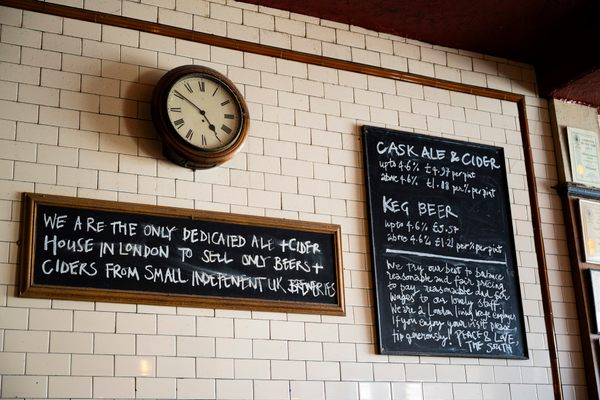 WE ARE THE ONLY DEDICATED ALE + CIDER
HOUSE IN LONDON TO SELL ONLY BEERS +
CIDERS FROM SMALL INDEPENENT U.K. BREWERIES
CASK ALE & CIDER
upto 4.6% £4.37 per pint
above 4.6% £1.08 per % per pint
KEG BEER
upto 4.6% £5.57
above 4.6% £1.21 per % per pint
We try our best to balance
reasonable and fair pricing
to pay reasonable and fair
wages to our lovely staff.
We are a London living wage employer
If you enjoy your visit please
tip generously! PEACE & LOVE,
THE SOUTH